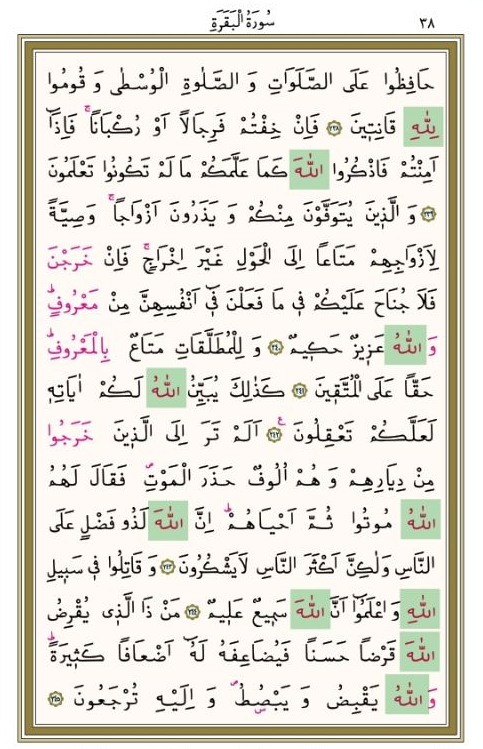 ٣٨ سُورَةُ الْبَقَرَةِ
حَافِظُوا عَلَى الصَّلَوَاتِ وَ الصَّلٰوةِ الْوُسْطٰى وَ قُومُوا
لِلّٰهِ قَانِتٖينَ ﴿٢٣٨﴾ فَاِنْ خِفْتُمْ فَرِجَالاً اَوْ رُكْبَاناًۚ فَاِذَٓا
اَمِنْتُمْ فَاذْكُرُوا اللّٰهَ كَمَا عَلَّمَكُمْ مَا لَمْ تَكُونُوا تَعْلَمُونَ
﴿٢٣٩﴾ وَ الَّذٖينَ يُتَوَفَّوْنَ مِنْكُمْ وَ يَذَرُونَ اَزْوَاجاًۚ وَصِيَّةً
لِاَزْوَاجِهِمْ مَتَاعاً اِلَى الْحَوْلِ غَيْرَ اِخْرَاجٍۚ فَاِنْ خَرَجْنَ
فَلَا جُنَاحَ عَلَيْكُمْ فٖى مَا فَعَلْنَ فٖٓى اَنْفُسِهِنَّ مِنْ مَعْرُوفٍؕ
وَ اللّٰهُ عَزٖيزٌ حَكٖيمٌ ﴿٢٤٠﴾ وَ لِلْمُطَلَّقَاتِ مَتَاعٌ بِالْمَعْرُوفِؕ
حَقًّا عَلَى الْمُتَّقٖينَ ﴿٢٤١﴾ كَذٰلِكَ يُبَيِّنُ اللّٰهُ لَكُمْ اٰيَاتِهٖ
لَعَلَّكُمْ تَعْقِلُونَ ﴿٢٤٢﴾ع اَلَمْ تَرَ اِلَى الَّذٖينَ خَرَجُوا
مِنْ دِيَارِهِمْ وَ هُمْ اُلُوفٌ حَذَرَ الْمَوْتِࣕ فَقَالَ لَهُمُ
اللّٰهُ مُوتُوا ثُمَّ اَحْيَاهُمْؕ اِنَّ اللّٰهَ لَذُو فَضْلٍ عَلَى
النَّاسِ وَلٰكِنَّ اَكْثَرَ النَّاسِ لَا يَشْكُرُونَ ﴿٢٤٣﴾ وَ قَاتِلُوا فٖى سَبٖيلِ
اللّٰهِ وَ اعْلَمُٓوا اَنَّ اللّٰهَ سَمٖيعٌ عَلٖيمٌ ﴿٢٤٤﴾ مَنْ ذَا الَّذٖى يُقْرِضُ
اللّٰهَ قَرْضاً حَسَناً فَيُضَاعِفَهُ لَهُٓ اَضْعَافاً كَثٖيرَةًؕ
وَ اللّٰهُ يَقْبِضُ وَ يَبْصُۣطُࣕ وَ اِلَيْهِ تُرْجَعُونَ ﴿٢٤٥﴾